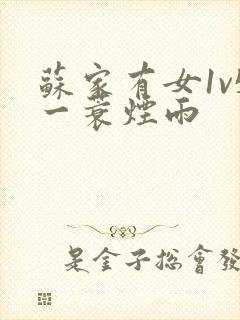 蘇家有女1v
一蓑煙雨
是金子總會發